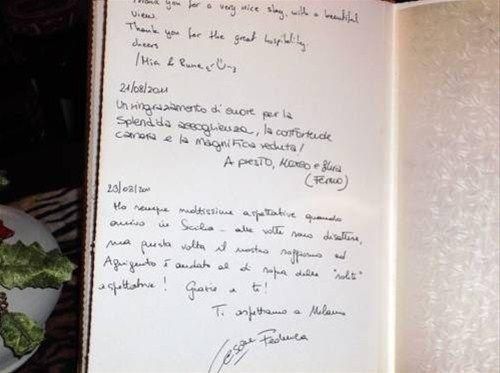 Thank you for a very nice stay, with a beautiful
view.
Thank you for the great hospitality.
cheers
/Mia & Rune
21/08/2011
Un ringraziamento di cuore per la
splendida accoglienza, la confortevole
camera e la magnifica veduta!
A presto, Marco e
(Fermo)
23/08/2011
Ho sempre moltissime aspettative quando
arrivo in Sicilia - alle volte sono disattese,
ma questa volta il nostro soggiorno ad
Agrigento è andato al di sopra delle "solite"
aspettative! Grazie a te!
Ti aspettiamo a Milano
Cesare Federica